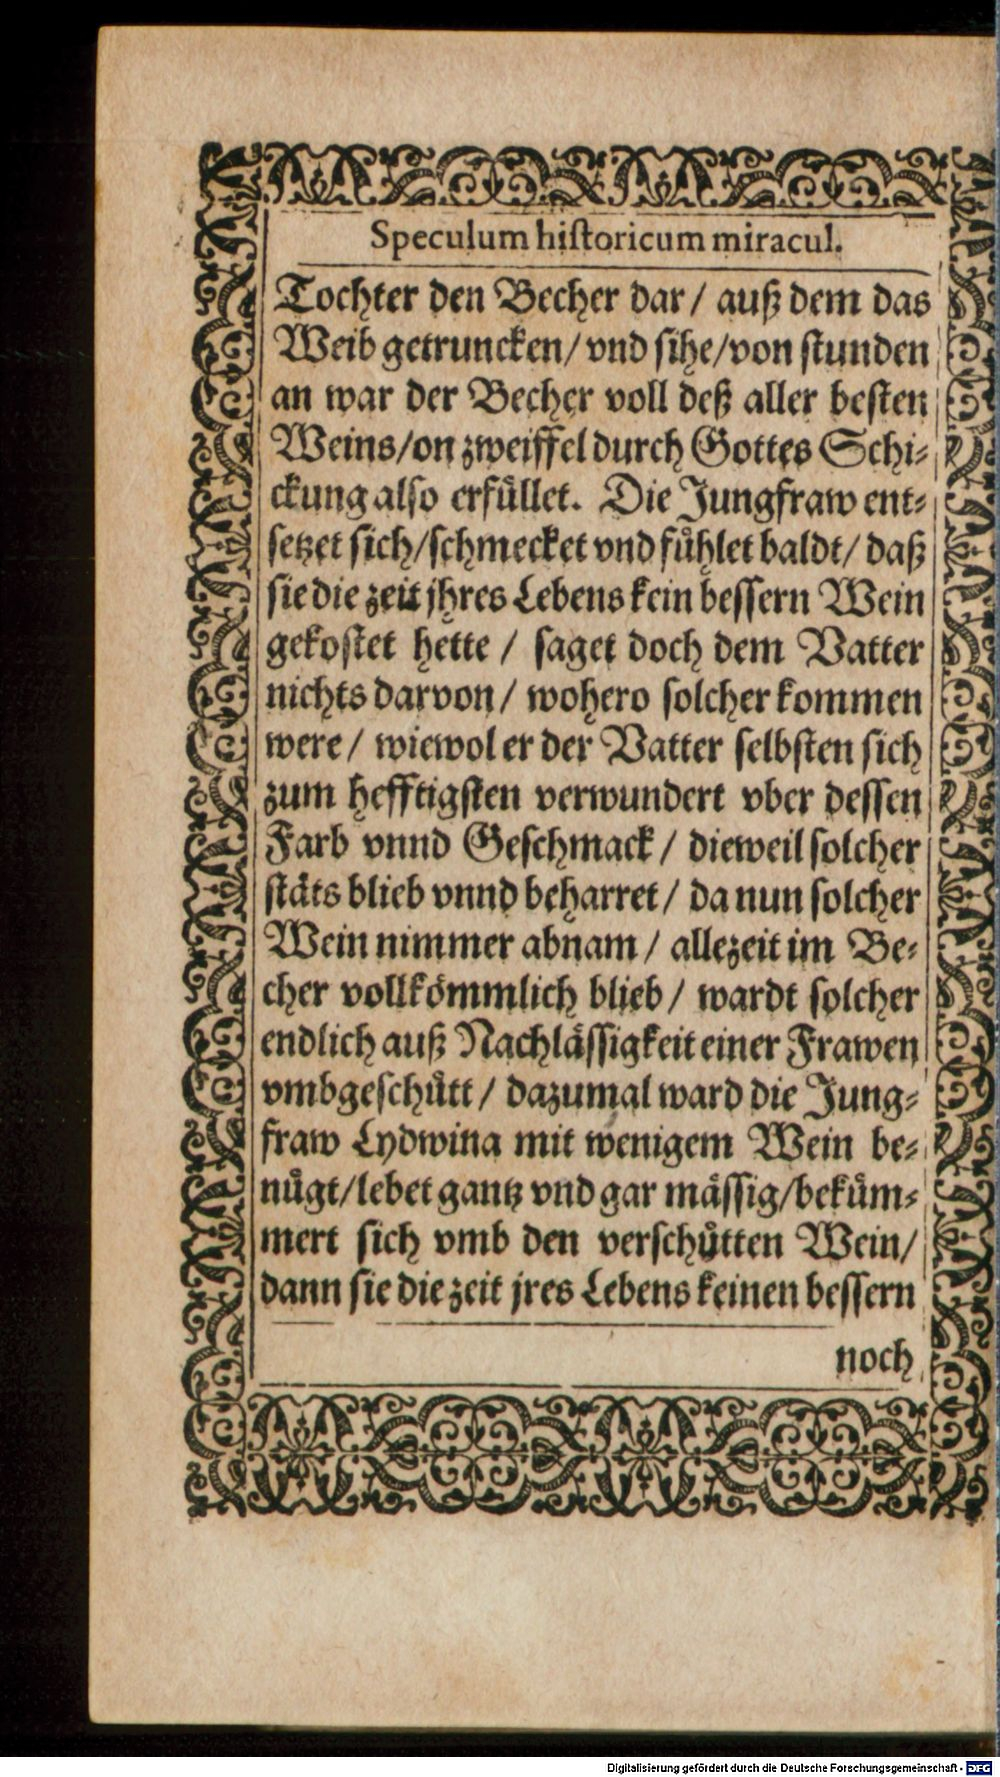 Speculum historicum miracul.
Tochter den Becher dar / auß dem das
Weib getruncken / vnd sihe / von stunden
an war der Becher voll deß aller besten
Weins / on zweiffel durch Gottes Schi-
ckung also erfüllet. Die Jungfraw ent-
setzet sich / schmecket vnd fühlet baldt / daß
sie die zeit jhres Lebens kein bessern Wein
gekostet hette / saget doch dem Vatter
nichts darvon / wohero solcher kommen
were / wiewol er der Vatter selbsten sich
zum hefftigsten verwundert vber dessen
Farb vnnd Geschmack / dieweil solcher
stäts blieb vnnd beharret / da nun solcher
Wein nimmer abnam / allezeit im Be-
cher vollkömmlich blieb / wardt solcher
endlich auß Nachlässigkeit einer Frawen
vmbgeschütt / dazumal ward die Jung-
fraw Lydwina mit wenigem Wein be-
nügt / lebet gantz vnd gar mässig / beküm-
mert sich vmb den verschütten Wein /
dann sie die zeit jres Lebens keinen bessern
noch
Digitalisierung gefördert durch die Deutsche Forschungsgemeinschaft - DFG